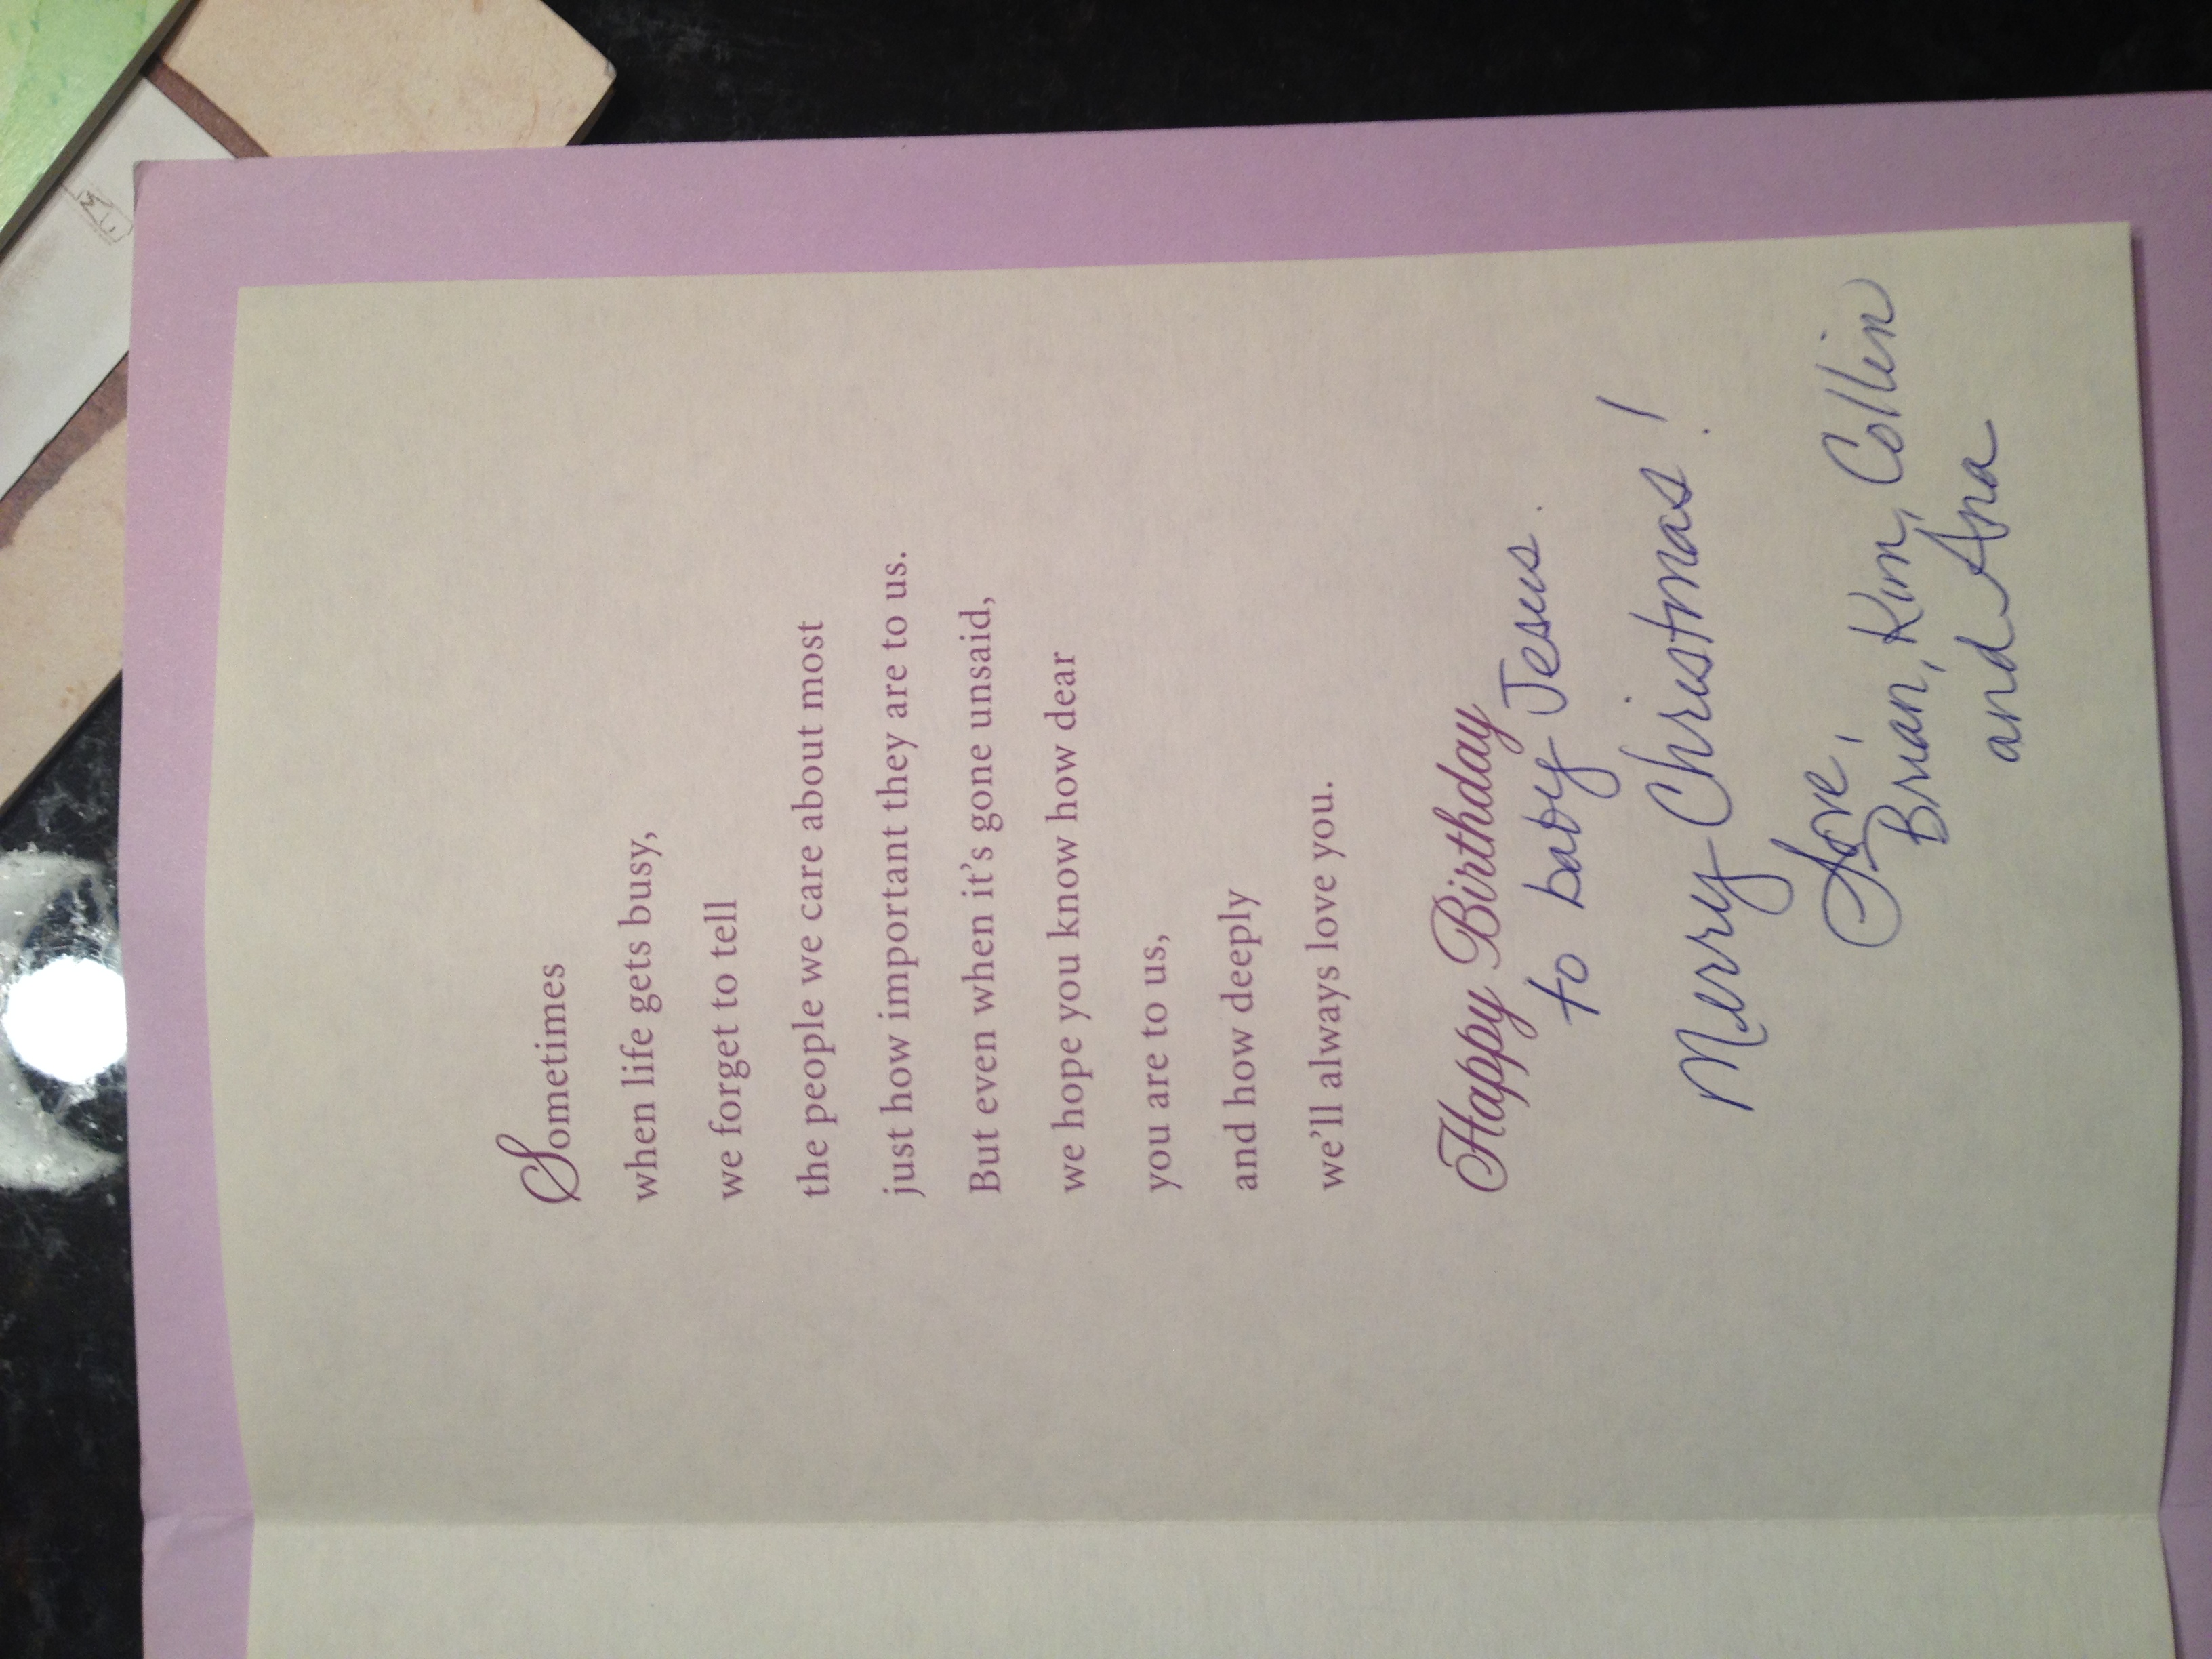 Sometimes
when life gets busy,
we forget to tell
the people we care about most
just how important they are to us.
But even when it's gone unsaid,
we hope you know how dear
you are to us,
and how deeply
we'll always love you.
Happy Birthday
to baby Jesus.
Merry Christmas!
Love,
Brian, Kim, Collin
and Ana